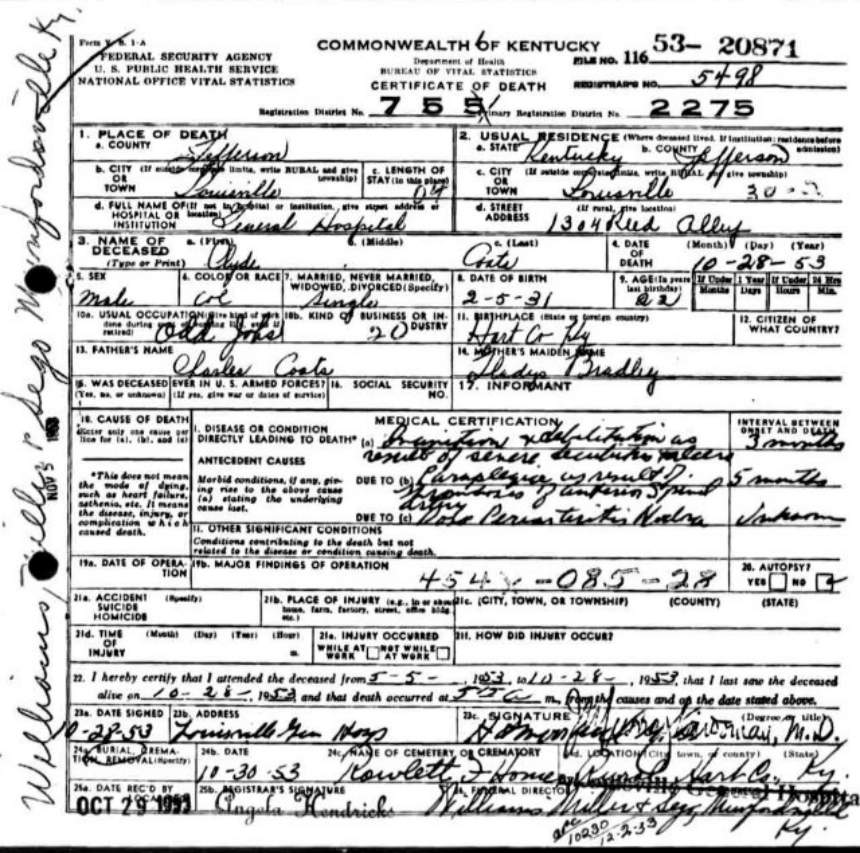 Form V. S. 1-A
FEDERAL SECURITY AGENCY
U. S. PUBLIC HEALTH SERVICE
NATIONAL OFFICE VITAL STATISTICS
COMMONWEALTH OF KENTUCKY
Department of Health
BUREAU OF VITAL STATISTICS
CERTIFICATE OF DEATH
FILE NO. 116 53- 20871
REGISTRAR'S NO. 5498
Registration District No. 755 Primary Registration District No. 2275
1. PLACE OF DEATH
a. COUNTY Jefferson
2. USUAL RESIDENCE (Where deceased lived. If institution: residence before admission)
a. STATE Kentucky b. COUNTY Jefferson
b. CITY (If outside corporate limits, write RURAL and give township)
OR TOWN Louisville
c. LENGTH OF STAY (in this place)
c. CITY (If outside corporate limits, write RURAL and give township)
OR TOWN Louisville
d. FULL NAME OF (If not in hospital or institution, give street address or location)
HOSPITAL OR INSTITUTION General Hospital
d. STREET ADDRESS (If rural, give location)
1304 Reed Alley
3. NAME OF DECEASED (Type or Print)
a. (First) Clyde b. (Middle) c. (Last) Coats
4. DATE OF DEATH (Month) (Day) (Year)
10-28-53
5. SEX Male
6. COLOR OR RACE Col
7. MARRIED, NEVER MARRIED, WIDOWED, DIVORCED (Specify) Single
8. DATE OF BIRTH 2-5-31
9. AGE (In years last birthday) 22
If Under 1 Year Months Days
If Under 24 Hrs Hours Min.
10a. USUAL OCCUPATION (Give kind of work done during most of working life, even if retired) Odd Jobs
10b. KIND OF BUSINESS OR INDUSTRY 20
11. BIRTHPLACE (State or foreign country) Hart Co Ky
12. CITIZEN OF WHAT COUNTRY?
13. FATHER'S NAME Charles Coats
14. MOTHER'S MAIDEN NAME Gladys Bradley
15. WAS DECEASED EVER IN U. S. ARMED FORCES?
(Yes, no, or unknown) (If yes, give war or dates of service)
16. SOCIAL SECURITY NO.
17. INFORMANT
18. CAUSE OF DEATH
Enter only one cause per line for (a), (b), and (c)
MEDICAL CERTIFICATION
INTERVAL BETWEEN ONSET AND DEATH
I. DISEASE OR CONDITION DIRECTLY LEADING TO DEATH* (a) Inanition & debilitation as result of severe decubitus ulcers 3 months
*This does not mean the mode of dying, such as heart failure, asthenia, etc. It means the disease, injury, or complication which caused death.
ANTECEDENT CAUSES
Morbid conditions, if any, giving rise to the above cause (a) stating the underlying cause last.
DUE TO (b) Paraplegia as result of thrombosis of anterior spinal artery 5 months
DUE TO (c) Periarteritis Nodosa Unknown
II. OTHER SIGNIFICANT CONDITIONS
Conditions contributing to the death but not related to the disease or condition causing death.
19a. DATE OF OPERATION
19b. MAJOR FINDINGS OF OPERATION
-085-28
20. AUTOPSY?
YES NO
21a. ACCIDENT SUICIDE HOMICIDE (Specify)
21b. PLACE OF INJURY (e.g., in or about home, farm, factory, street, office bldg. etc.)
21c. (CITY, TOWN, OR TOWNSHIP) (COUNTY) (STATE)
21d. TIME OF INJURY (Month) (Day) (Year) (Hour) m.
21e. INJURY OCCURRED
WHILE AT WORK NOT WHILE AT WORK
21f. HOW DID INJURY OCCUR?
22. I hereby certify that I attended the deceased from 5-5-, 1953, to 10-28-, 1953, that I last saw the deceased
alive on 10-28-, 1953, and that death occurred at m., from the causes and on the date stated above.
23a. DATE SIGNED 10-28-53
23b. ADDRESS Louisville Gen Hosp
23c. SIGNATURE (Degree or title) M.D.
24a. BURIAL, CREMATION, REMOVAL (Specify)
24b. DATE 10-30-53
24c. NAME OF CEMETERY OR CREMATORY Rowlett
24d. LOCATION (City, town, or county) (State) Hart Co., Ky.
Louisville General Hospital
25a. DATE REC'D BY LOCAL REG. OCT 29 1953
25b. REGISTRAR'S SIGNATURE Angela Hendricks
26. FUNERAL DIRECTOR Williams, Miller & Sego, Munfordville Ky.
10230
12-2-53
Williams, Miller & Sego Munfordville Ky.
NOV 5 1953